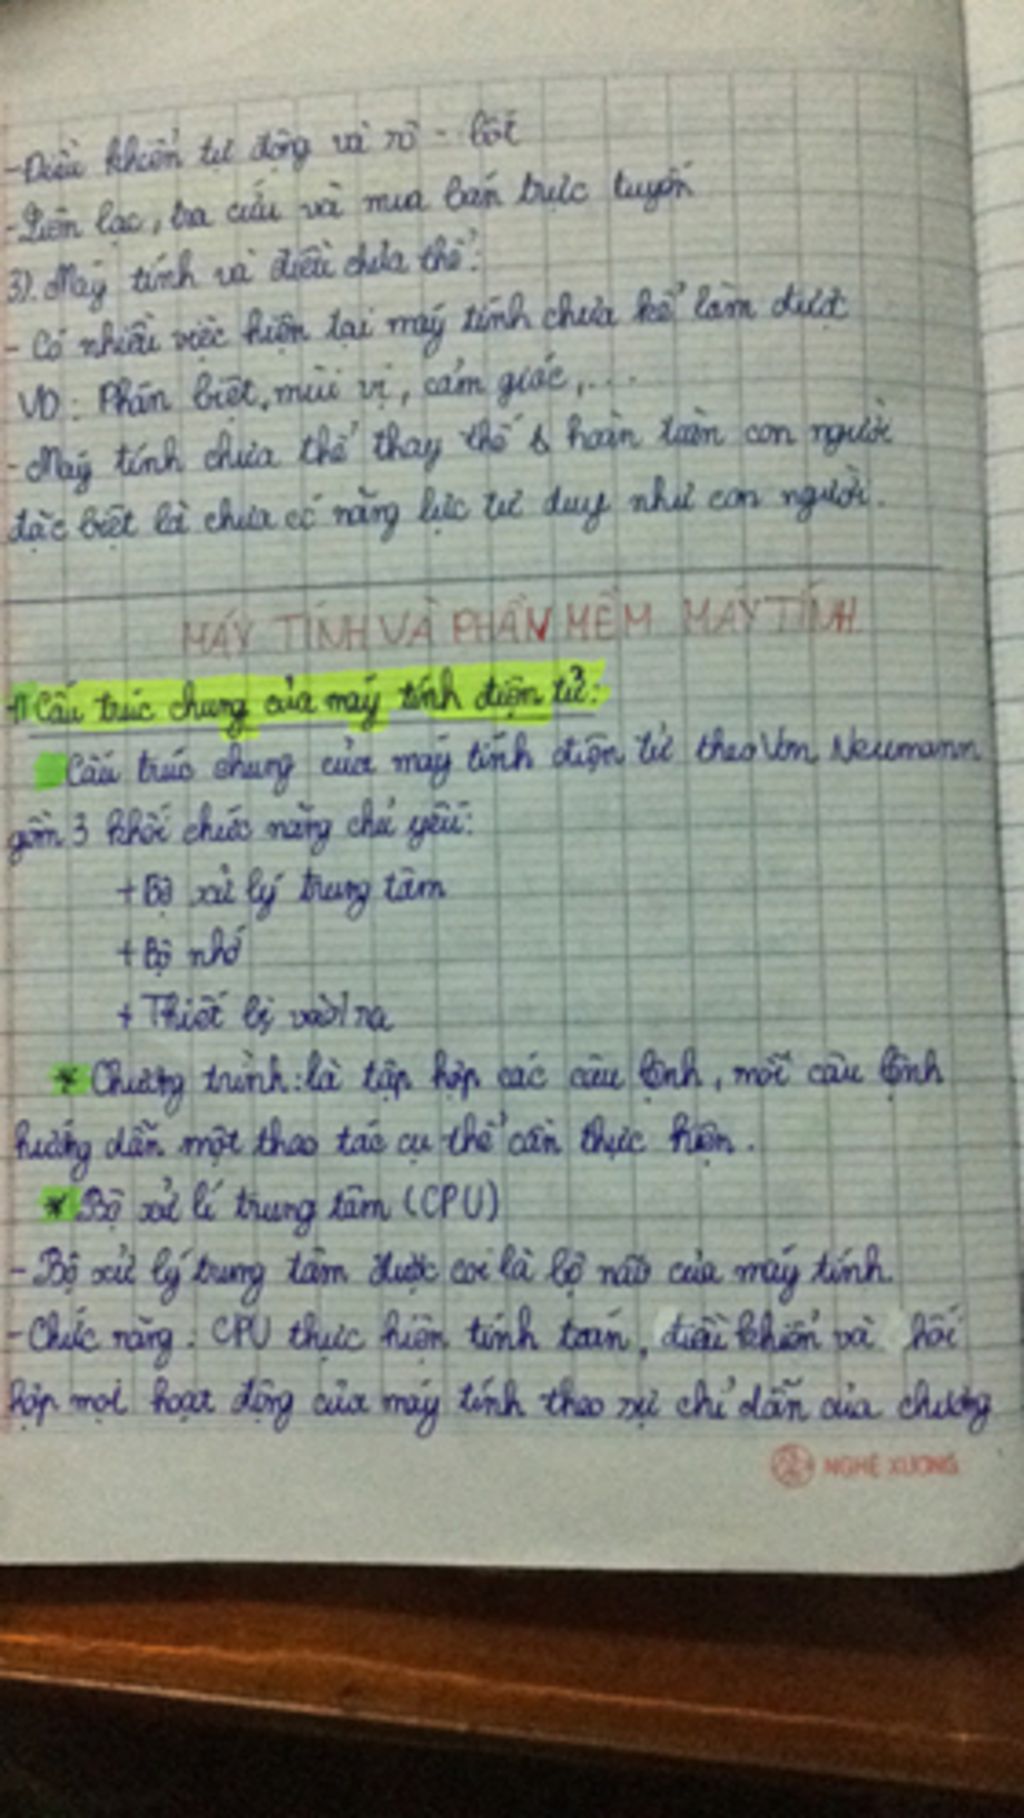 -Điều khiển tự động và rô - bốt
-Liên lạc, tra cứu và mua bán trực tuyến
3). Máy tính và điều chưa thể:
- Có nhiều việc hiện tại máy tính chưa thể làm được
VD: Phân biệt, mùi vị, cảm giác,....
-Máy tính chưa thể thay thế hoàn toàn con người
đặc biệt là chưa có năng lực tư duy như con người.
MÁY TÍNH VÀ PHẦN MỀM MÁY TÍNH
1) Cấu trúc chung của máy tính điện tử:
Cấu trúc chung của máy tính điện tử theo Von Neumann
gồm 3 khối chức năng chủ yếu:
+ Bộ xử lý trung tâm
+ Bộ nhớ
+ Thiết bị vào/ra
* Chương trình: là tập hợp các câu lệnh, mỗi câu lệnh
hướng dẫn một thao tác cụ thể cần thực hiện.
* Bộ xử lí trung tâm (CPU)
- Bộ xử lý trung tâm được coi là bộ não của máy tính.
- Chức năng: CPU thực hiện tính toán, điều khiển và phối
hợp mọi hoạt động của máy tính theo sự chỉ dẫn của chương
NGHĨA XƯƠNG